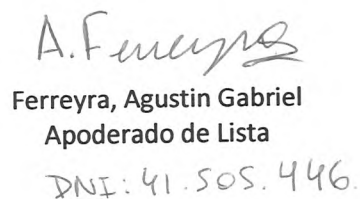 A. Ferreyra
Ferreyra, Agustin Gabriel
Apoderado de Lista
DNI: 41.505.446.